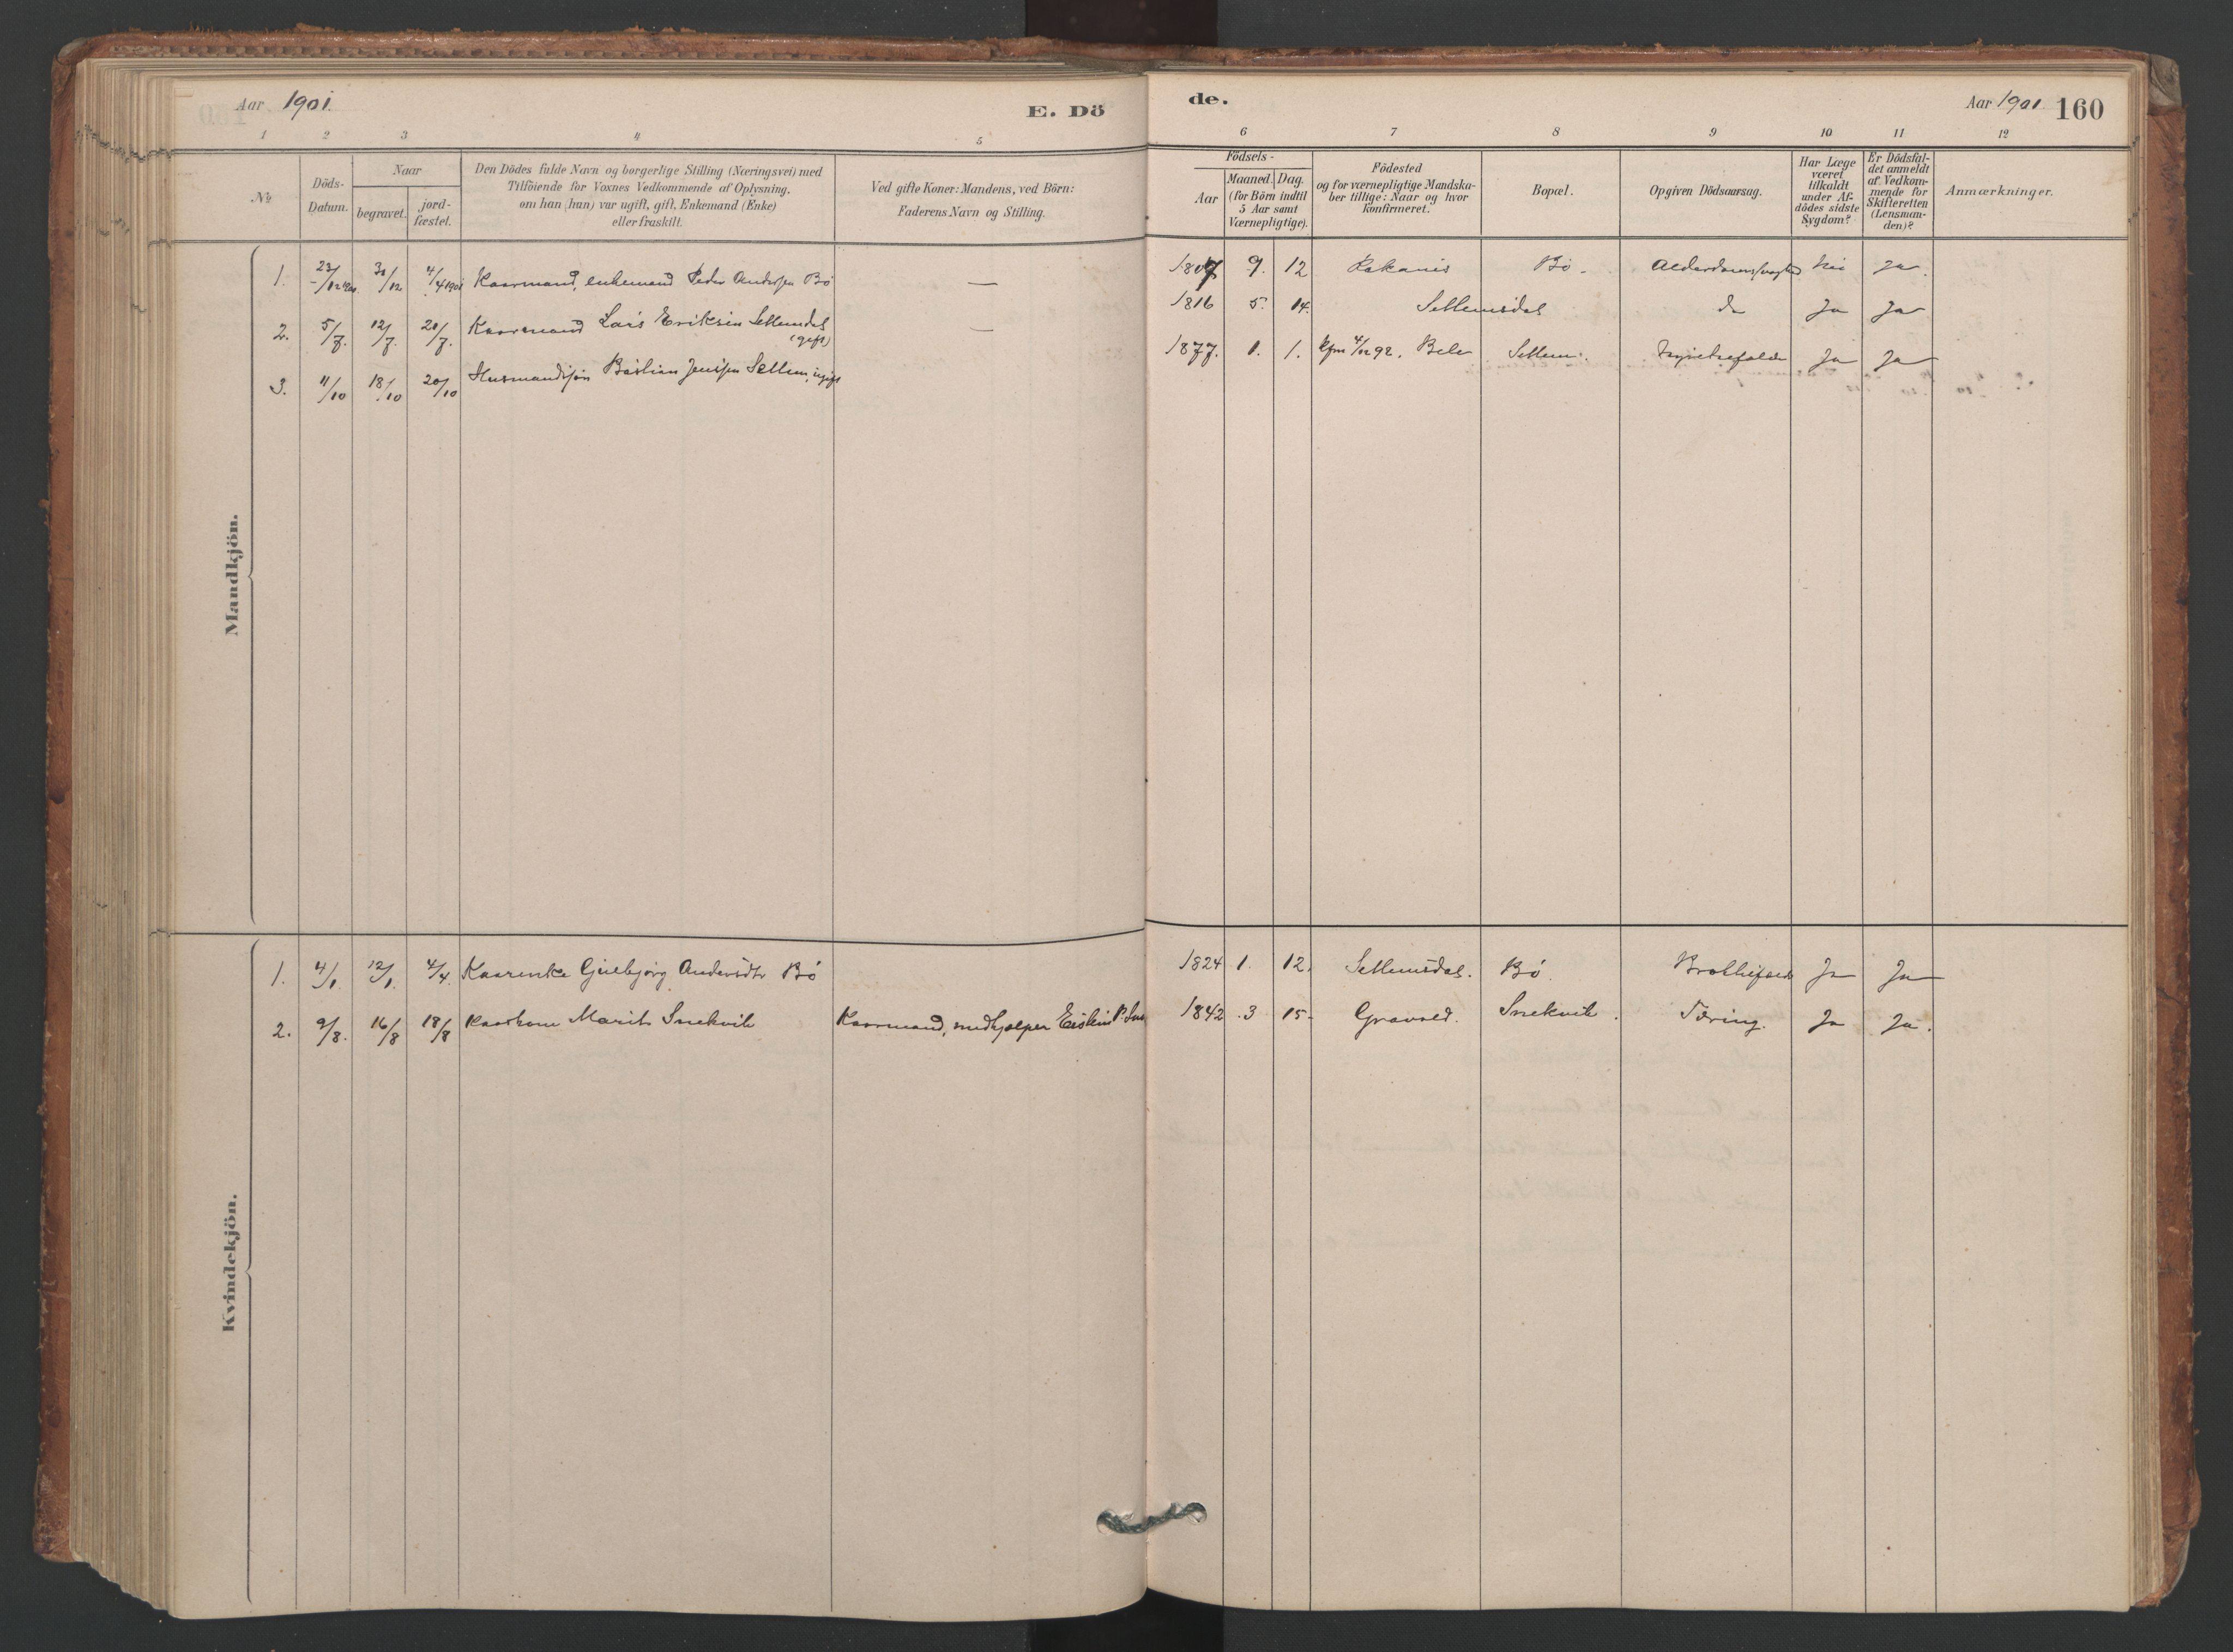 Aar 1901.
E. Dö
de.
Aar 1901 160
1 2 3 4 5 6 7 8 9 10 11 12
No
Döds-Datum.
Naar
begravet.
jord-fæstet.
Den Dödes fulde Navn og borgerlige Stilling (Næringsvei) med
Tilföiende for Voxnes Vedkommende af Oplysning,
om han (hun) var ugift, gift, Enkemand (Enke)
eller fraskilt.
Ved gifte Koner: Mandens, ved Börn:
Faderens Navn og Stilling.
Födsels-
Aar
Maaned. Dag.
(for Börn indtil
5 Aar samt
Værnepligtige).
Födested
og for værnepligtige Mandska-
ber tillige: Naar og hvor
konfirmeret.
Bopæl.
Opgiven Dödsaarsag.
Har Læge
været
tilkaldt
under Af-
dödes sidste
Sygdom?
Er Dödsfal-
det anmeldt
af Vedkom-
mende for
Skifteretten
(Lensman-
den)?
Anmærkninger.
Mandkjön.
1. 23/12 1900 30/12 4/4 1901 Kaarmand, enkemand Peder Andersen Bö — 1807 9. 12 Bö. Alderdomssvaghed Nei Ja.
2. 5/7. 12/7. 20/7. Kaarmand Lars Eriksen Settemsdal (gift) — 1816 5. 14. Settemsdal do Ja Ja
3. 11/10 18/10 20/10 Husmandssön Bastian Jenssen Settem, ugift 1877. 1. 1. kfm 4/12 92. Settem. Ja Ja
Kvindekjön.
1. 4/1. 12/1. 4/4. Kaarenke Guebjørg Andersdtr Bö 1824 1. 12. Settemsdal. Bö. Ja Ja
2. 9/8. 16/8 18/8 Kaarkone Marit Snekvik Kaarmand, medhjælper 1842 3 15 Gravvold. Snekvik. Tæring. Ja Ja.